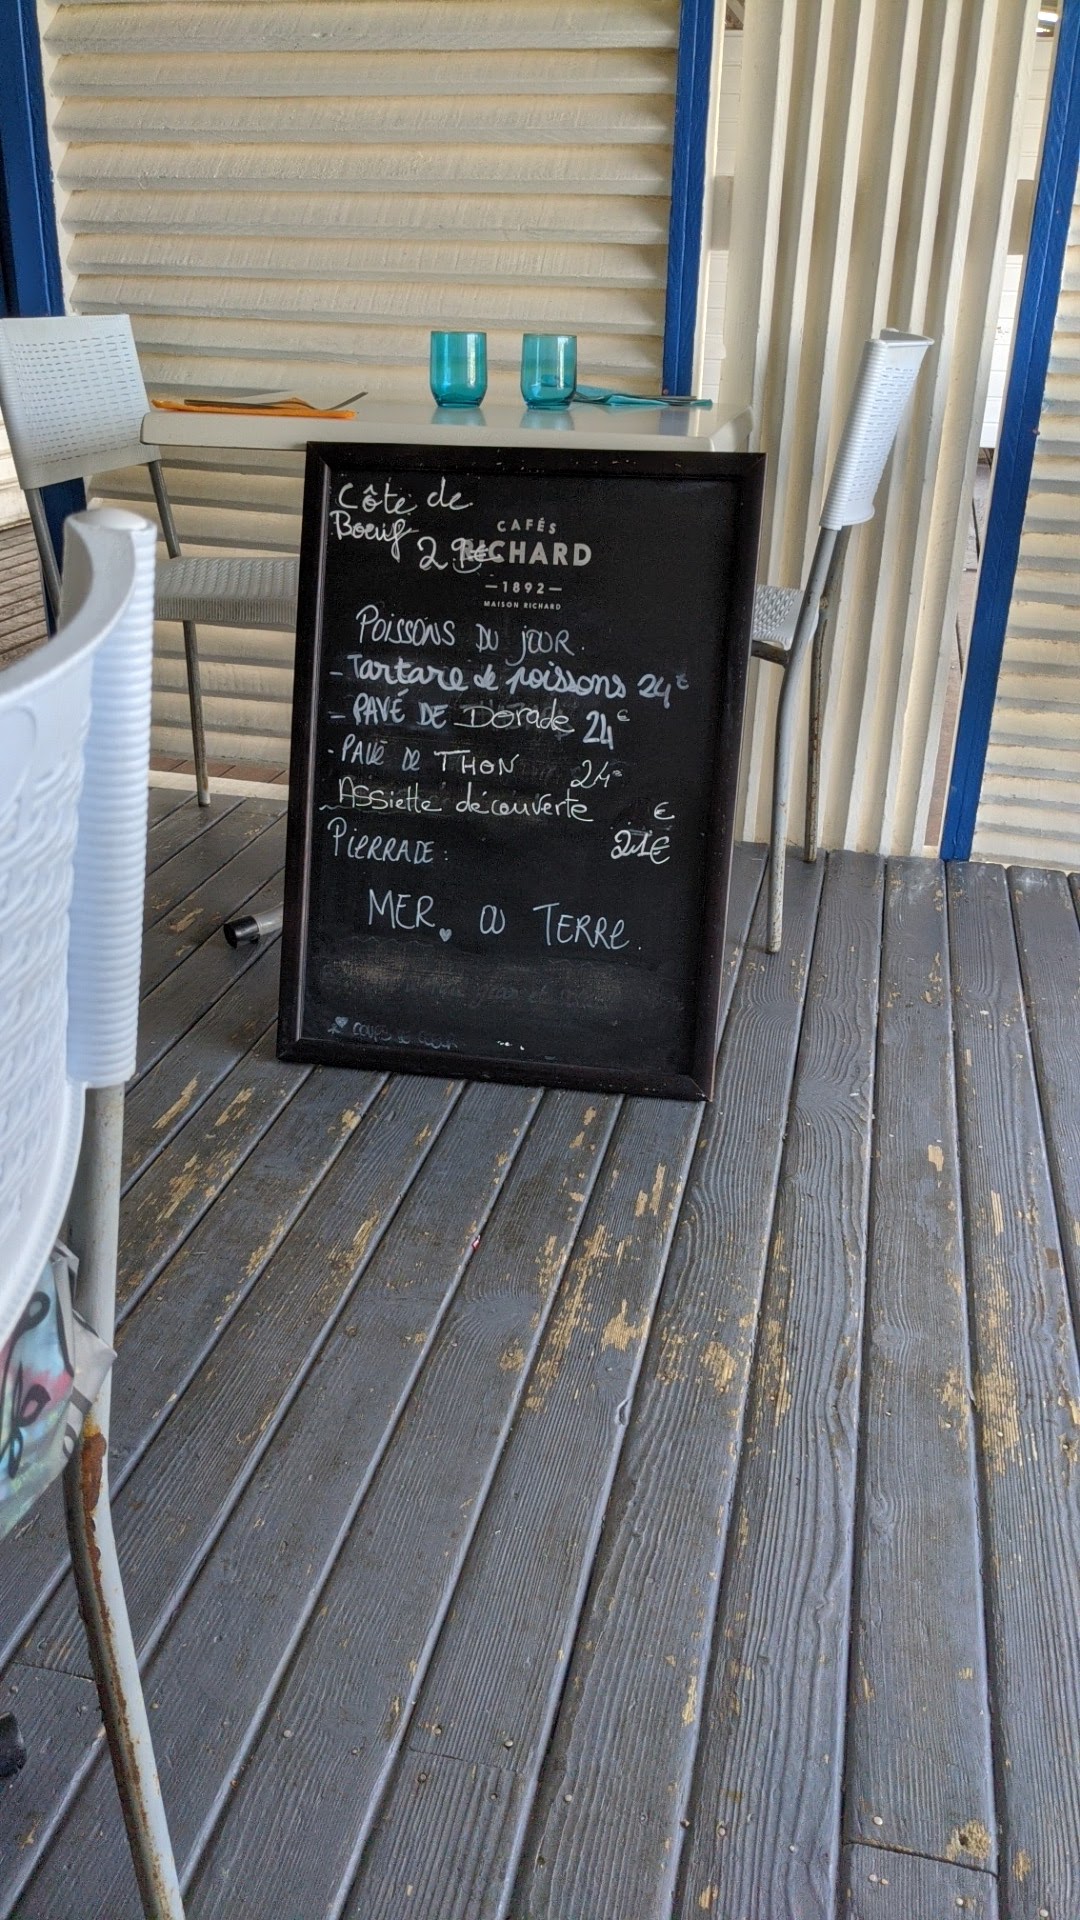 Côte de
Boeuf 29€
CAFÉS
RICHARD
—1892—
MAISON RICHARD
POISSONS DU JOUR.
- Tartare de poissons 24€
- PAVÉ DE Dorade 24€
- PAVÉ DE THON 24€
- ASSiette découverte €
PIERRADE: 21€
MER ♥ OU TERRE.